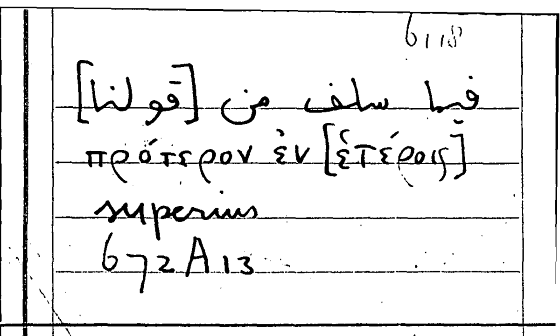 6118
فيما سلف من [قولنا]
πρότερον ἐν [ἑτέροις]
superius
672A13